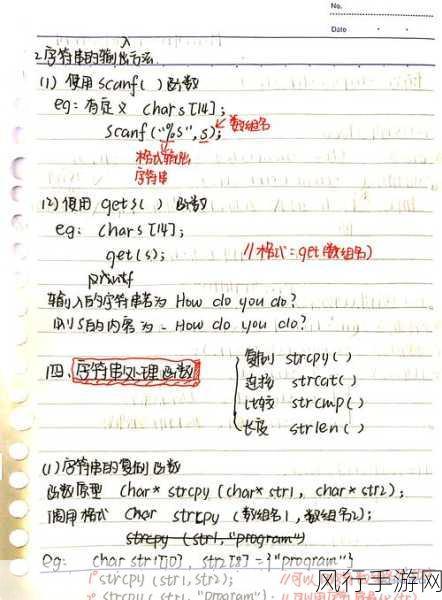 No.
Date
入
2.字符串的输出方法
(1) 使用 scanf( ) 函数
eg: 有定义 char s [14];
scanf("%s",s); 数组名
格式输出
字符串
(2) 使用 gets( ) 函数
eg: char s [14];
get(s); //格式:get(数组名)
printf
输入的字符串若为 How do you do?
则 s 的内容为 . How do you do?
四、字符串处理函数
复制 strcpy( )
连接 strcat( )
比较 strcmp( )
长度 strlen( )
(1) 字符串的复制函数
函数原型 char* strcpy (char* str1, char* str2);
调用格式 char strcpy (数组名1, 数组名2);
strcpy (str1,"program")
eg: char str1[10], str2[8]={"program"}
1° strcpy (str1, str2); //可以
2° strcpy (str1, "Program"); //可以用
风行手游网